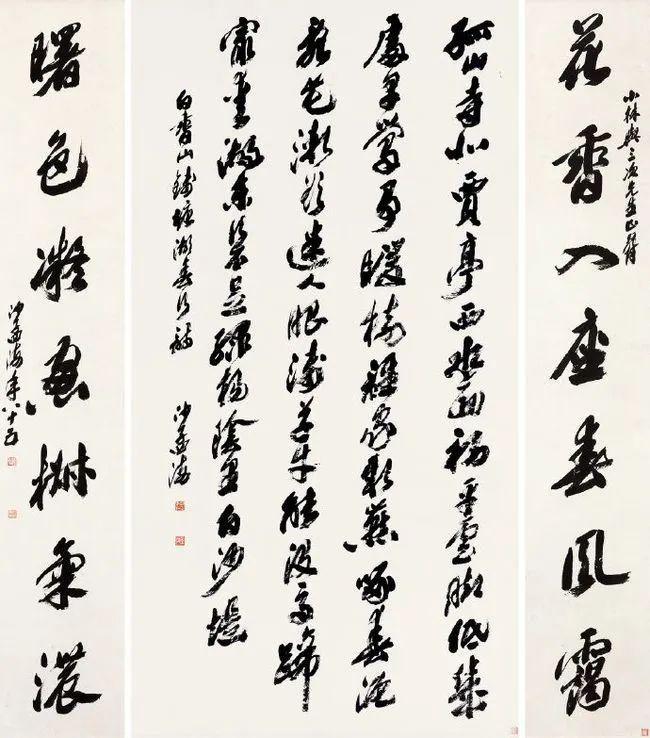 小林與三次先生正
花香入座春風靄
孤山寺北賈亭西水面初平雲脚低幾
處早鶯爭暖樹誰家新燕啄春泥
亂花漸欲迷人眼淺草才能没馬蹄
最愛湖東行不足綠楊陰里白沙堤
白香山錢塘湖春行詩 沙孟海
曙色凝窗氣濃
沙孟海年八十五